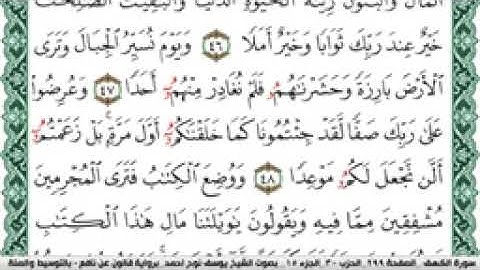 المال والبنون زينة الحيوة الدنيا والبقيت الصلحت
خَيْرٌ عِندَ رَبِّكَ ثَوَابًا وَخَيْرٌ أَمَلًا ٤٦ وَيَوْمَ نُسَيِّرُ الْجِبَالَ وَتَرَى
الْأَرْضَ بَارِزَةً وَحَشَرْنَٰهُمُۥ فَلَمْ نُغَادِرْ مِنْهُمُۥ أَحَدًا ٤٧ وَعُرِضُوا
عَلَىٰ رَبِّكَ صَفًّا لَّقَدْ جِئْتُمُونَا كَمَا خَلَقْنَٰكُمُۥ أَوَّلَ مَرَّةٍ بَلْ زَعَمْتُمُۥ
أَلَّن نَّجْعَلَ لَكُمُۥ مَوْعِدًا ٤٨ وَوُضِعَ الْكِتَٰبُ فَتَرَى الْمُجْرِمِينَ
مُشْفِقِينَ مِمَّا فِيهِ وَيَقُولُونَ يَٰوَيْلَتَنَا مَالِ هَٰذَا الْكِتَٰبِ
سورة الكهف - الصفحة ٢٩٩ - الحزب ٣٠ - الجزء ١٥ - بصوت الشيخ يوسف نوح احمد - برواية قالون عن نافع - بالتوسيط والصلة